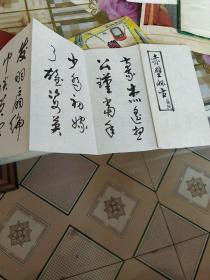 赤壁怀古
豪杰遥想
公瑾当年
小乔初嫁
了雄姿英
发羽扇纶
巾谈笑